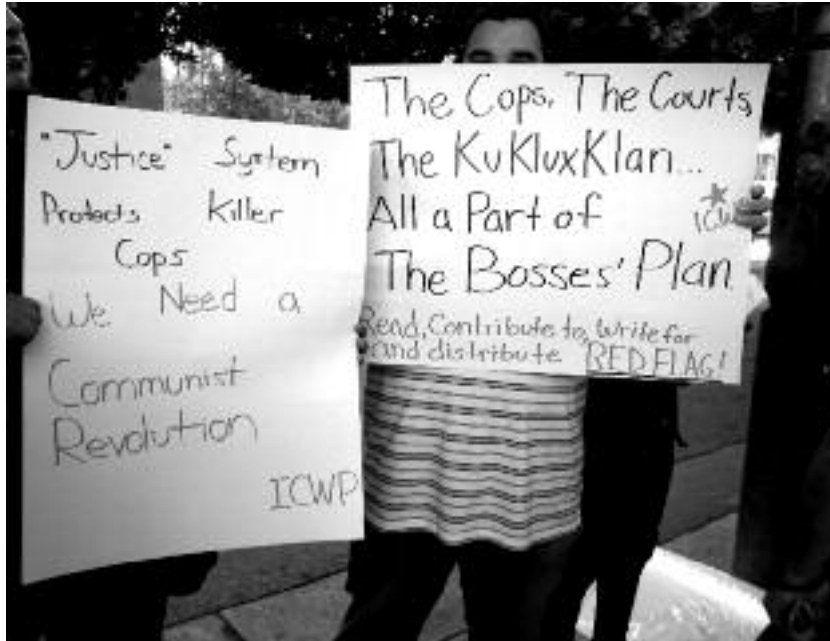 "Justice" System
Protects Killer
Cops
We Need a
Communist
Revolution
ICWP
The Cops, The Courts,
The KuKluxKlan...
All a Part of
ICW
The Bosses' Plan
Read, Contribute to, Write for
and distribute RED FLAG!